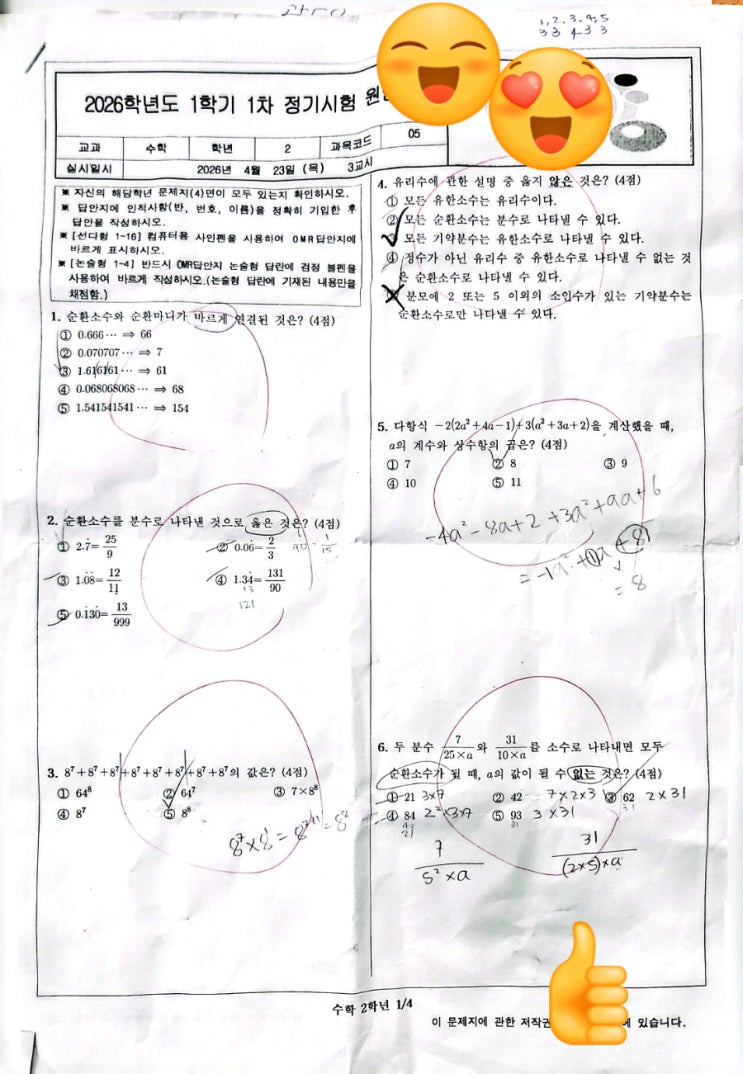 1, 2, 3, 4, 5
3 3 4 3 3
2026학년도 1학기 1차 정기시험
교과 수학 학년 2 과목코드 05
실시일시 2026년 4월 23일 (목) 3교시
※ 자신의 해당학년 문제지(4)면이 모두 있는지 확인하시오.
※ 답안지에 인적사항(반, 번호, 이름)을 정확히 기입한 후
답안을 작성하시오.
※ [선다형 1~16] 컴퓨터용 사인펜을 사용하여 OMR답안지에
바르게 표시하시오.
※ [논술형 1~4] 반드시 OMR답안지 논술형 답란에 검정 볼펜을
사용하여 바르게 작성하시오.(논술형 답란에 기재된 내용만을
채점함.)
1. 순환소수와 순환마디가 바르게 연결된 것은? (4점)
① 0.666⋯ ⇒ 66
② 0.070707⋯ ⇒ 7
③ 1.616161⋯ ⇒ 61
④ 0.068068068⋯ ⇒ 68
⑤ 1.541541541⋯ ⇒ 154
2. 순환소수를 분수로 나타낸 것으로 옳은 것은? (4점)
① 2.7̇=25/9 ② 0.06̇=2/3
③ 1.0̇8̇=12/11 ④ 1.34̇=131/90
13
121
⑤ 0.1̇30̇=13/999
3. 8⁷+8⁷+8⁷+8⁷+8⁷+8⁷+8⁷+8⁷의 값은? (4점)
① 64⁸ ② 64⁷ ③ 7×8⁸
④ 8⁷ ⑤ 8⁸
4. 유리수에 관한 설명 중 옳지 않은 것은? (4점)
① 모든 유한소수는 유리수이다.
② 모든 순환소수는 분수로 나타낼 수 있다.
③ 모든 기약분수는 유한소수로 나타낼 수 있다.
④ 정수가 아닌 유리수 중 유한소수로 나타낼 수 없는 것
은 순환소수로 나타낼 수 있다.
⑤ 분모에 2 또는 5 이외의 소인수가 있는 기약분수는
순환소수로만 나타낼 수 있다.
5. 다항식 −2(2a²+4a−1)+3(a²+3a+2)을 계산했을 때,
a의 계수와 상수항의 곱은? (4점)
① 7 ② 8 ③ 9
④ 10 ⑤ 11
-4a²-8a+2+3a²+9a+6
= 8
6. 두 분수 7/(25×a)와 31/(10×a)를 소수로 나타내면 모두
순환소수가 될 때, a의 값이 될 수 없는 것은? (4점)
① 21 3×7 ② 42 7×2×3 ③ 62 2×31
④ 84 2²×3×7 ⑤ 93 3×31
7/(5²×a) 31/((2×5)×a)
수학 2학년 1/4
이 문제지에 관한 저작권 에 있습니다.